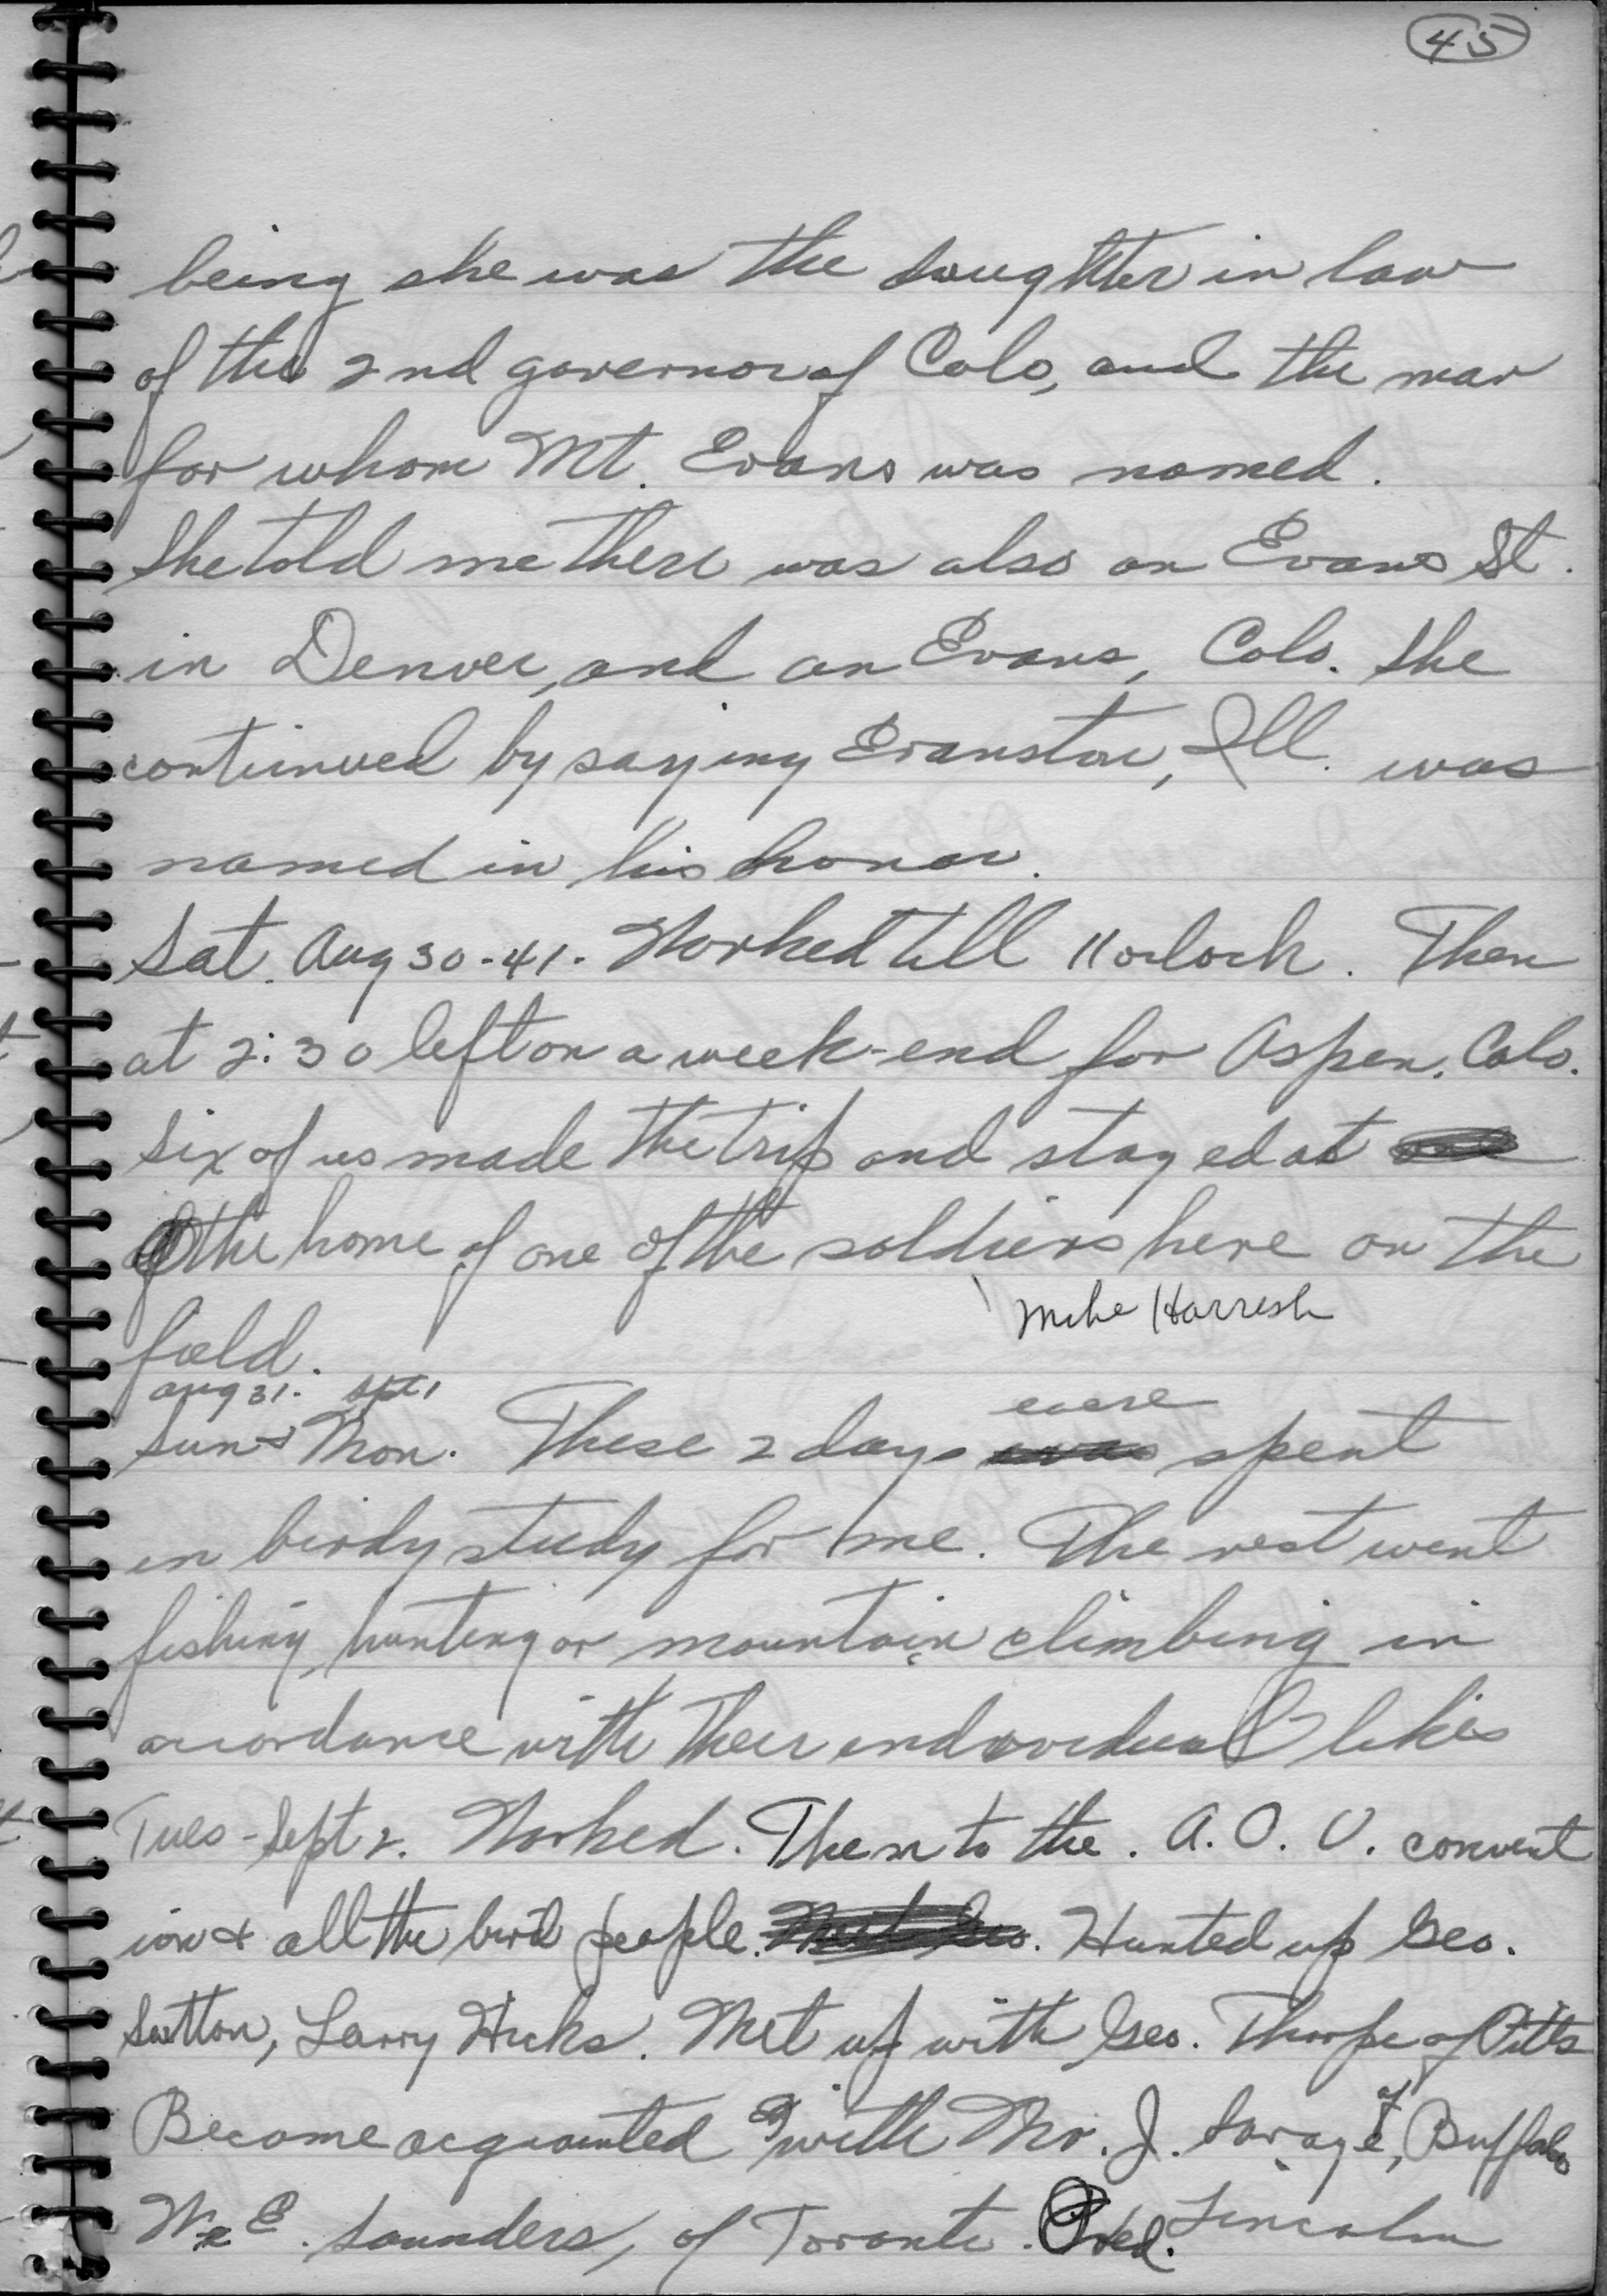 45
being she was the daughter in law
of the 2nd governor of Colo, and the man
for whom Mt. Evans was named.
She told me there was also an Evans St.
in Denver, and an Evans, Colo. She
continued by saying Evanston, Ill. was
named in his honor.
Sat. Aug 30-41. Worked till 11 oclock. Then
at 2:30 left on a week-end for Aspen. Colo.
Six of us made the trip and stayed at
the home of one of the soldiers here on the
Mike Harrish
field.
Aug 31. Sept 1
Sun & Mon. These 2 days were spent
in birdy study for me. The rest went
fishing, hunting or mountain climbing in
accordance with their individual likes
Tues - Sept 2. Worked. Then to the. A.O.U. convent
ion & all the bird people. Hunted up Geo.
Sutton, Larry Hicks. Met up with Geo. Thorpe of Pitts
Become acquainted with Mr. J. Savage, of Buffalo
W E. Saunders, of Toronto. Fred. Lincoln